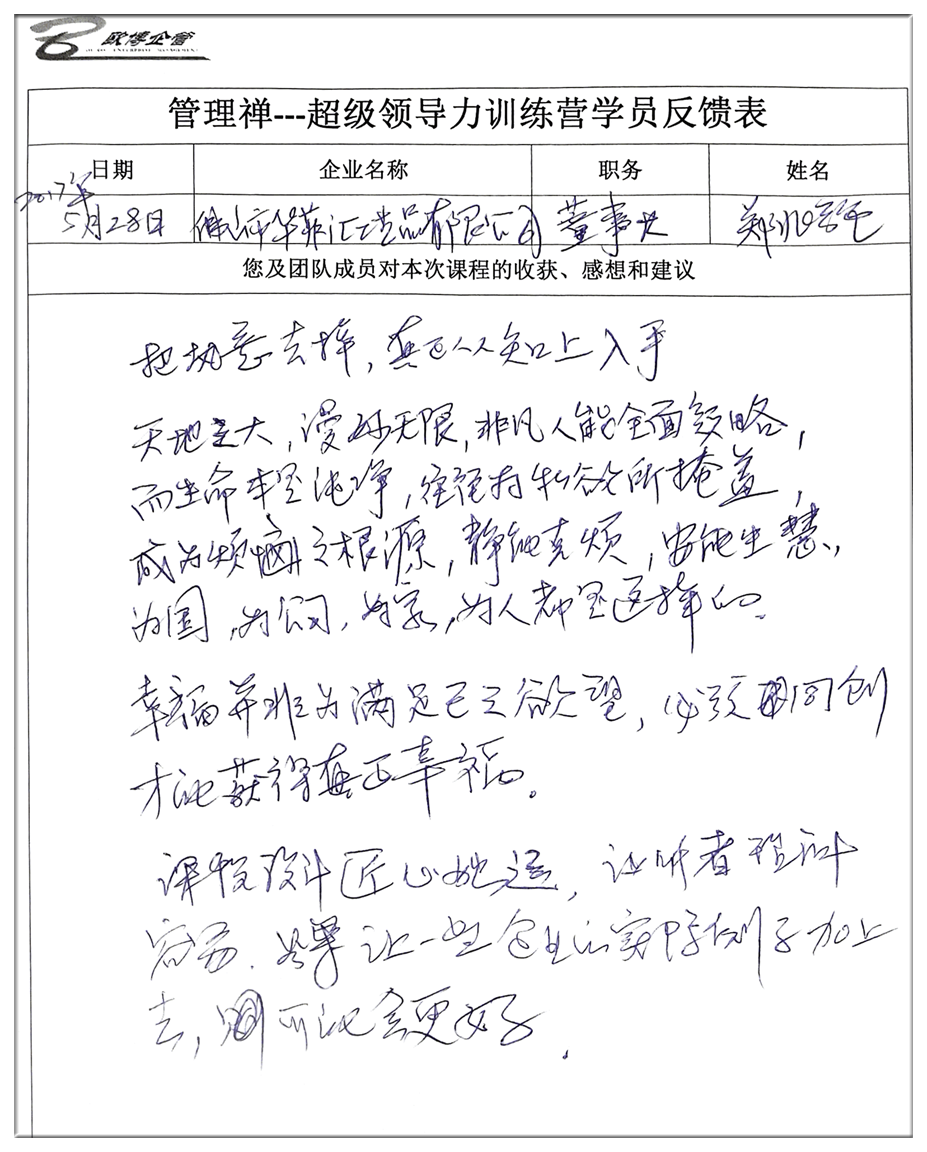 欧博企管
管理禅---超级领导力训练营学员反馈表
日期 企业名称 职务 姓名
2017年
5月28日 佛山市华菲汇洁品有限公司 董事长 郑
您及团队成员对本次课程的收获、感想和建议
把执意去掉，真正从人知上入手
天地之大，漫妙无限，非凡人能全面领略，
而生命本是纯净，往往被物欲所掩盖，
成为烦恼之根源，静能克烦，安能生慧，
为国，为公司，为家，为人都是选择的。
幸福并非为满足己之欲望，必须用同创
才能获得真正幸福。
课程设计匠心独运，让听者理解
容易．如果让一些企业的实际例子加上
去，则可能会更好．